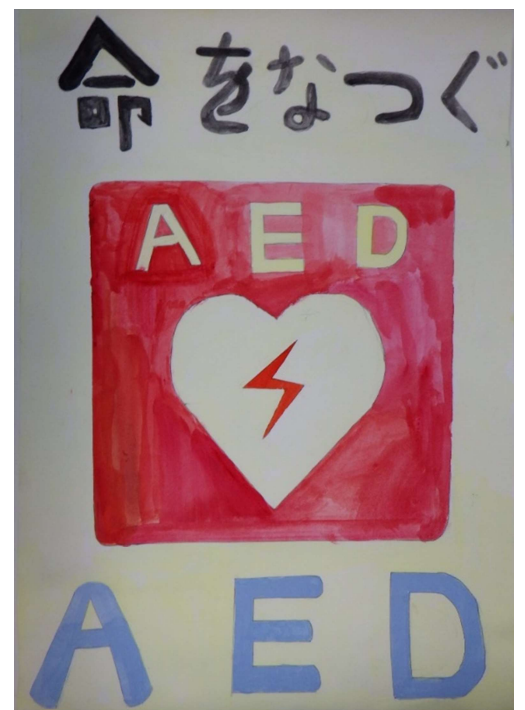 命をなつぐ
AED
AED